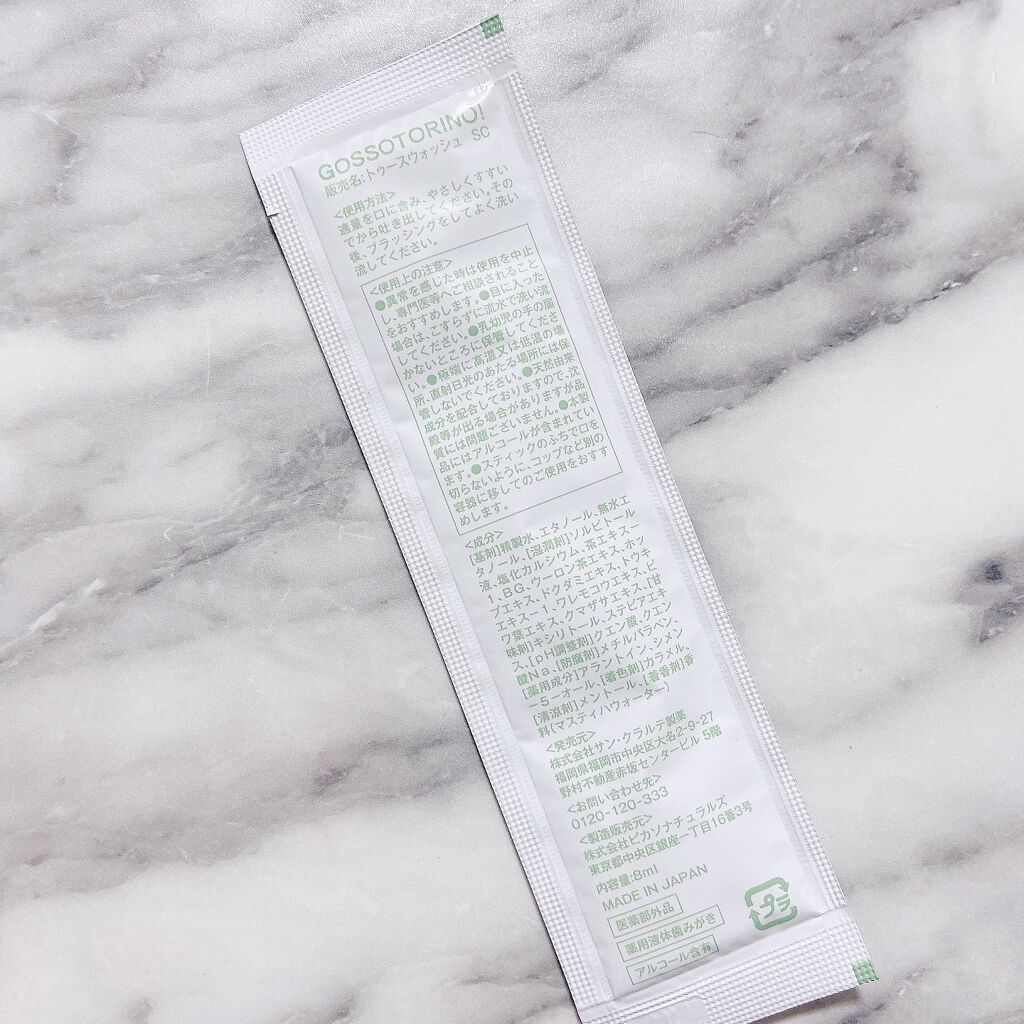 GOSSOTORINO!
販売名:トゥースウォッシュ SC
<使用方法>
適量を口に含み、やさしくすすい
でから吐き出してください。その
後、ブラッシングをしてよく洗い
流してください。
<使用上の注意>
●異常を感じた時は使用を中止
し、専門医等へご相談されること
をおすすめします。●目に入った
場合は、こすらずに流水で洗い流
してください。●乳幼児の手の届
かないところに保管してくださ
い。●極端に高温又は低温の場
所、直射日光のあたる場所には保
管しないでください。●天然由来
成分を配合しておりますので、沈
殿等が出る場合がありますが品
質には問題ございません。●本製
品にはアルコールが含まれてい
ます。●スティックのふちで口を
切らないように、コップなど別の
容器に移してのご使用をおすす
めします。
<成分>
[基剤]精製水、エタノール、無水エ
タノール、[湿潤剤]ソルビトール
液、塩化カルシウム、茶エキス-
1、BG、ウーロン茶エキス、ホッ
プエキス、ドクダミエキス、トウキ
エキス-1、ワレモコウエキス、ビ
ワ葉エキス、クマザサエキス、[甘
味剤]キシリトール、ステビアエキ
ス、[pH調整剤]クエン酸、クエン
酸Na、[防腐剤]メチルパラベン、
[薬用成分]アラントイン、シメン
-5-オール、[着色剤]カラメル、
[清涼剤]メントール、[着香剤]香
料(マスティハウォーター)
<発売元>
株式会社サン・クラルテ製薬
福岡県福岡市中央区大名2-9-27
野村不動産赤坂センタービル 5階
<お問い合わせ先>
0120-120-333
<製造販売元>
株式会社ピカソナチュラルズ
東京都中央区銀座一丁目16番3号
内容量:8ml
MADE IN JAPAN
医薬部外品
薬用液体歯みがき
アルコール含有
プラ